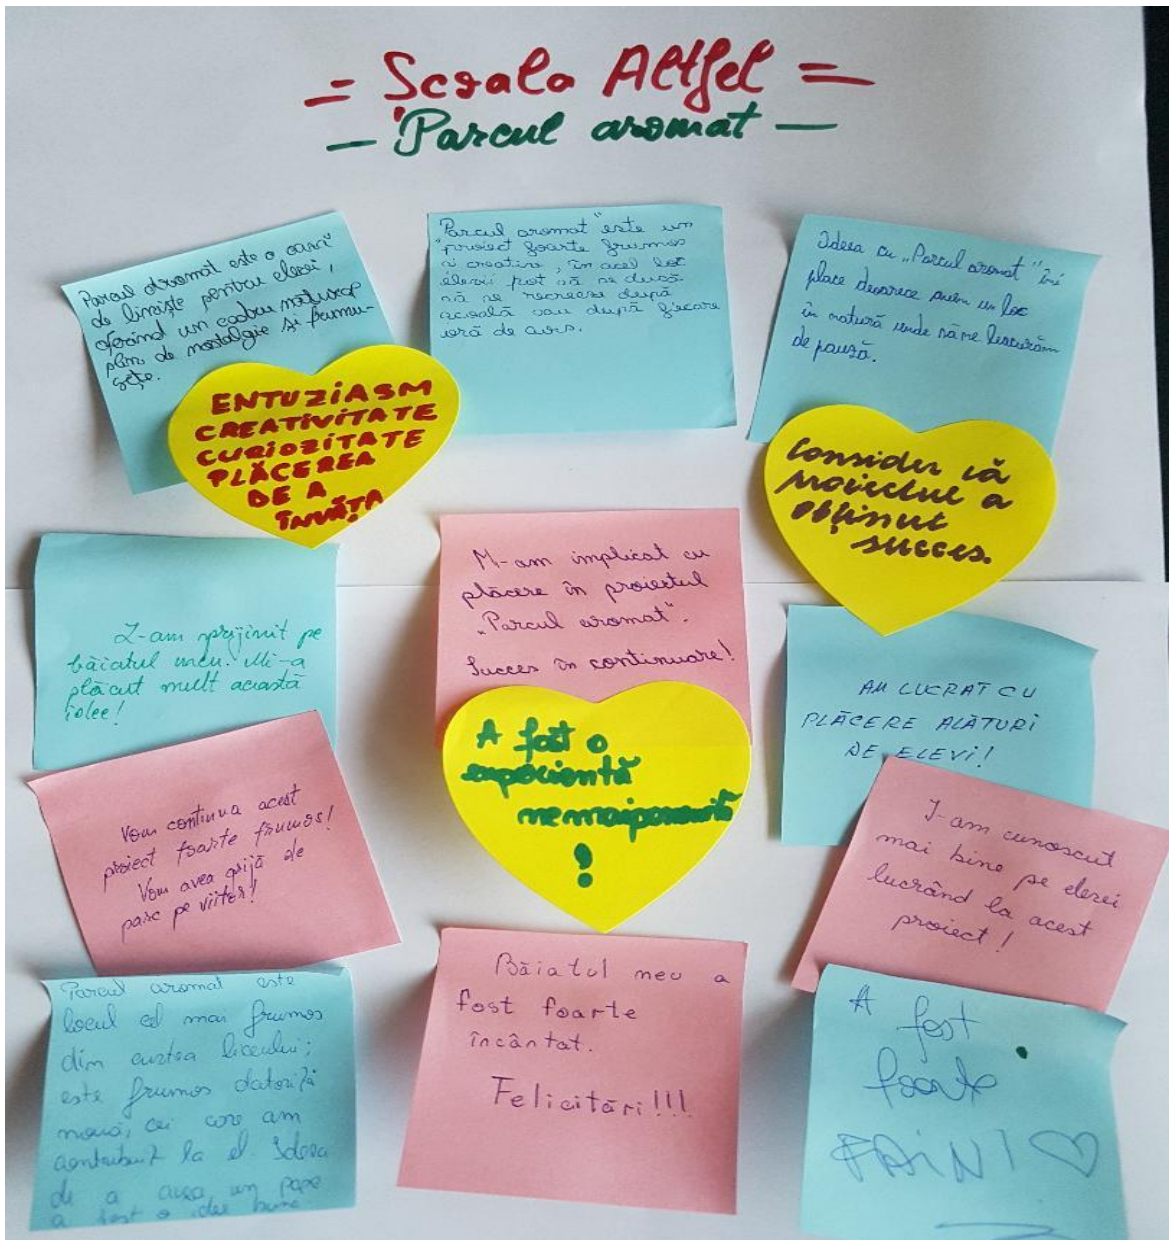 = Școala Altfel =
— Parcul aromat —
Parcul aromat este o oază
de liniște pentru elevi,
oferind un cadru natural
plin de nostalgie și frumu-
sețe.
Parcul aromat" este un
"proiect foarte frumos
și creativ, în acel loc
elevii pot să se ducă
să se recreeze după
școală sau după fiecare
oră de curs.
Ideea cu „Parcul aromat" îmi
place deoarece avem un loc
în natură unde să ne bucurăm
de pauză.
ENTUZIASM
CREATIVITATE
CURIOZITATE
PLĂCEREA
DE A
ÎNVĂȚA
Consider că
proiectul a
obținut
succes.
L-am sprijinit pe
băiatul meu. Mi-a
plăcut mult această
idee!
M-am implicat cu
plăcere în proiectul
„Parcul aromat".
Succes în continuare!
AM LUCRAT CU
PLĂCERE ALĂTURI
DE ELEVI!
A fost o
experiență
nemaipomenită
!
Vom continua acest
proiect foarte frumos!
Vom avea grijă de
parc pe viitor!
I-am cunoscut
mai bine pe elevi
lucrând la acest
proiect!
Parcul aromat este
locul cel mai frumos
din curtea liceului;
este frumos datorită
nouă, cei care am
contribuit la el. Ideea
de a avea un
a fost o idee bună
Băiatul meu a
fost foarte
încântat.
Felicitări!!!
A fost
foarte
FAIN! ♡